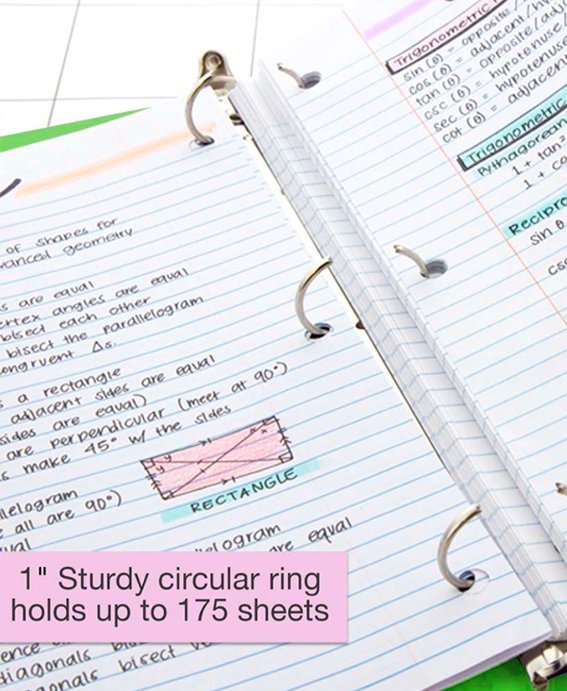 of shapes for
advanced geometry
s are equal
vertex angles are equal
bisect each other
bisect the parallelogram
congruent Δs.
s a rectangle
adjacent sides are equal
sides are equal)
are perpendicular (meet at 90°)
s make 45° w/ the sides
RECTANGLE
allelogram
e all are 90°)
ual
allelogram
are equal
ence
diagonals
onals bisect
1" Sturdy circular ring
holds up to 175 sheets
Trigonometric
sin (θ) = opposite/
cos (θ) = adjacent/hy
tan (θ) = opposite/adj
csc (θ) = hypotenuse/
sec (θ) = hypotenuse
cot (θ) = adjacen
Trigonometric
Pythagorean
1 + tan²
1 + co
Recipro
sin θ
csc